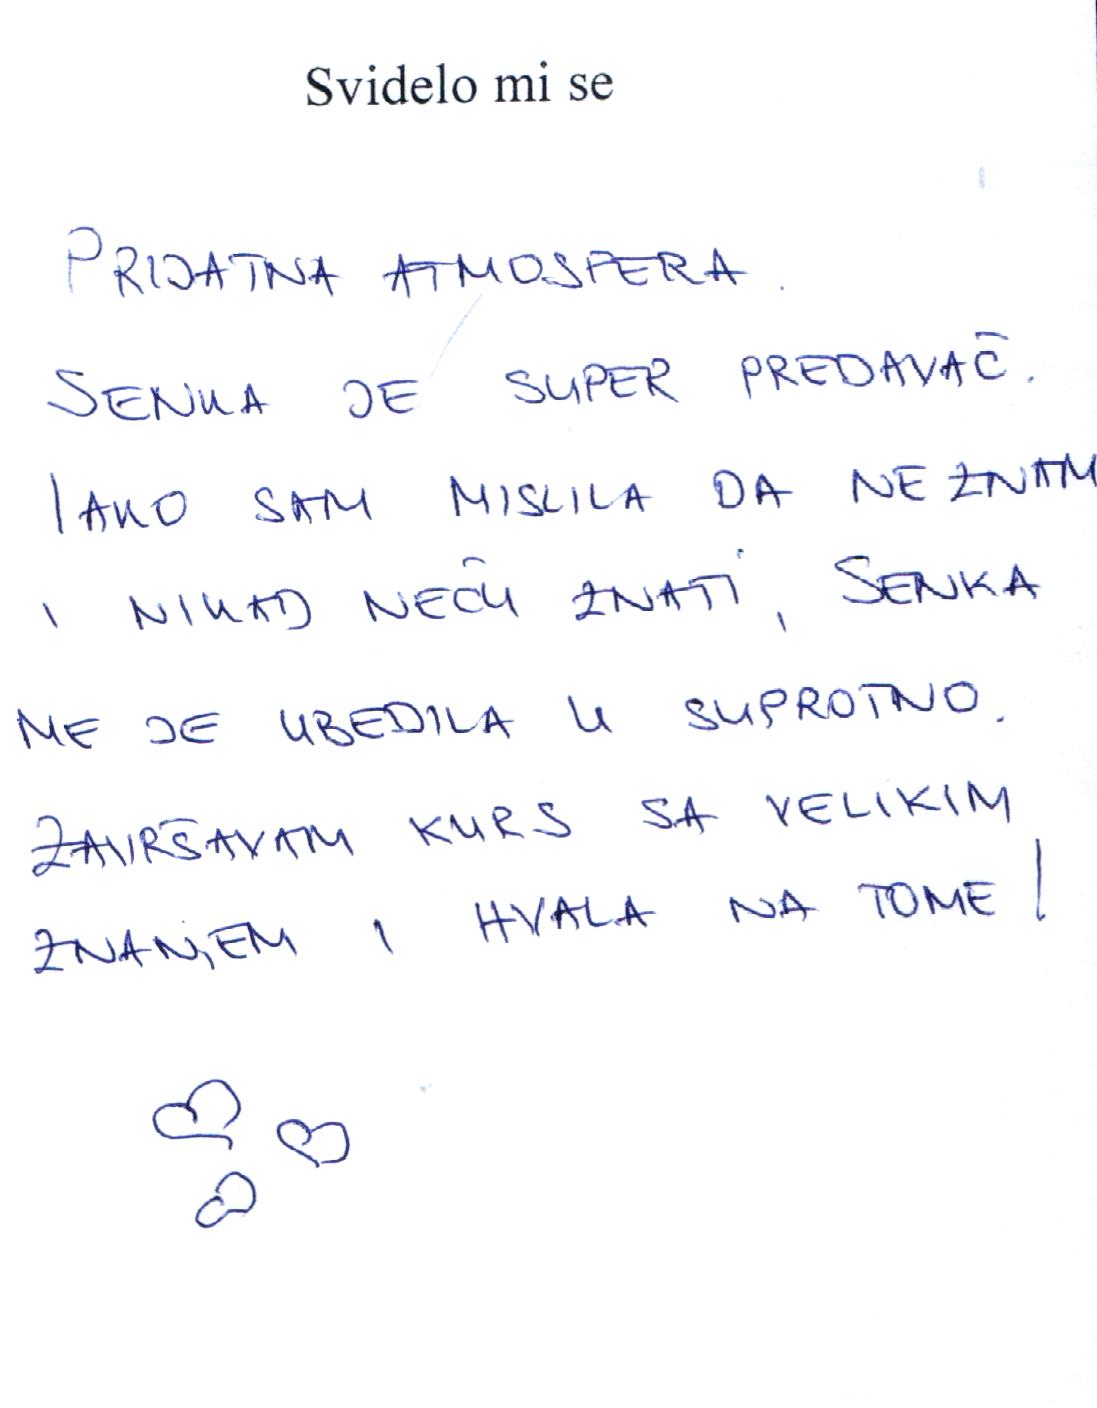 Svidelo mi se
PRIJATNA ATMOSFERA.
SENKA JE SUPER PREDAVAČ.
IAKO SAM MISLILA DA NE ZNAM
I NIKAD NEĆU ZNATI, SENKA
ME JE UBEDILA U SUPROTNO.
ZAVRŠAVAM KURS SA VELIKIM
ZNANJEM I HVALA NA TOME!